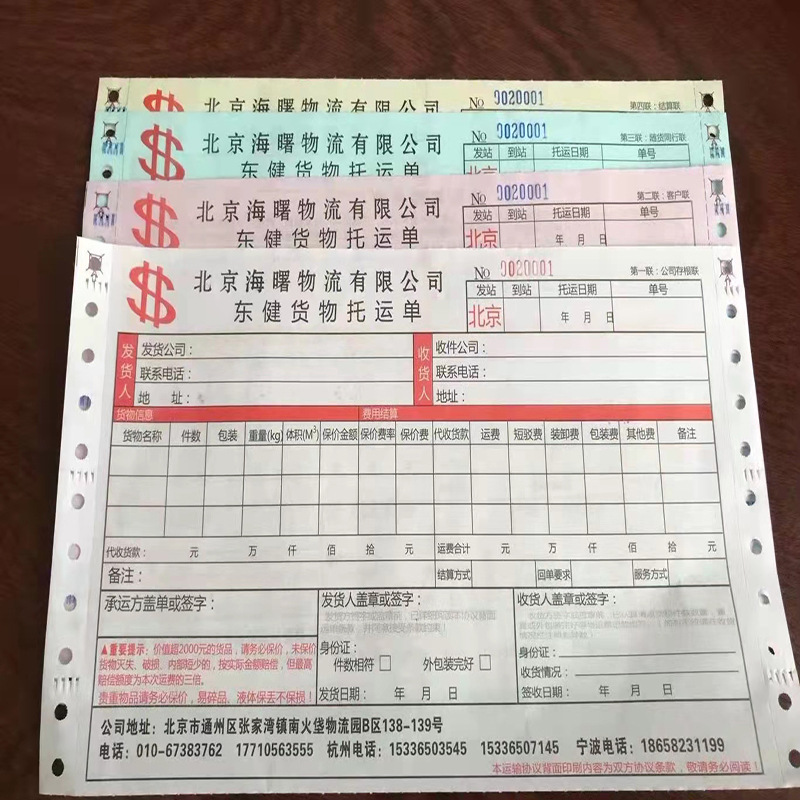 北京海曙物流有限公司
No 0020001
第四联：结算联
北京海曙物流有限公司
东健货物托运单
No 0020001
第三联：随货同行联
发站 到站 托运日期 单号
北京海曙物流有限公司
东健货物托运单
No 0020001
第二联：客户联
发站 到站 托运日期 单号
北京 年 月 日
北京海曙物流有限公司
东健货物托运单
No 0020001
第一联：公司存根联
发站 到站 托运日期 单号
北京 年 月 日
发货人 发货公司： 收货人 收件公司：
联系电话： 联系电话：
地 址： 地址：
货物信息 费用结算
货物名称 件数 包装 重量(kg) 体积(M³) 保价金额 保价费率 保价费 代收货款 运费 短驳费 装卸费 包装费 其他费 备注
代收货款： 元 万 仟 佰 拾 元 运费合计 元 万 仟 佰 拾 元
备注： 结算方式 回单要求 服务方式
承运方盖单或签字： 发货人盖章或签字： 收货人盖章或签字：
▲重要提示：价值超2000元的货品，请务必保价，未保价
货物灭失、破损、内部短少的，按实际金额赔偿，但最高
赔偿额度为本次运费的三倍。
贵重物品请务必保价，易碎品、液体保丢不保损！
身份证：
件数相符 外包装完好
发货日期： 年 月 日
身份证：
收货情况：
签收日期： 年 月 日
公司地址：北京市通州区张家湾镇南火垡物流园B区138-139号
电话：010-67383762 17710563555 杭州电话：15336503545 15336507145 宁波电话：18658231199
本运输协议背面印刷内容为双方协议条款，敬请务必阅读！